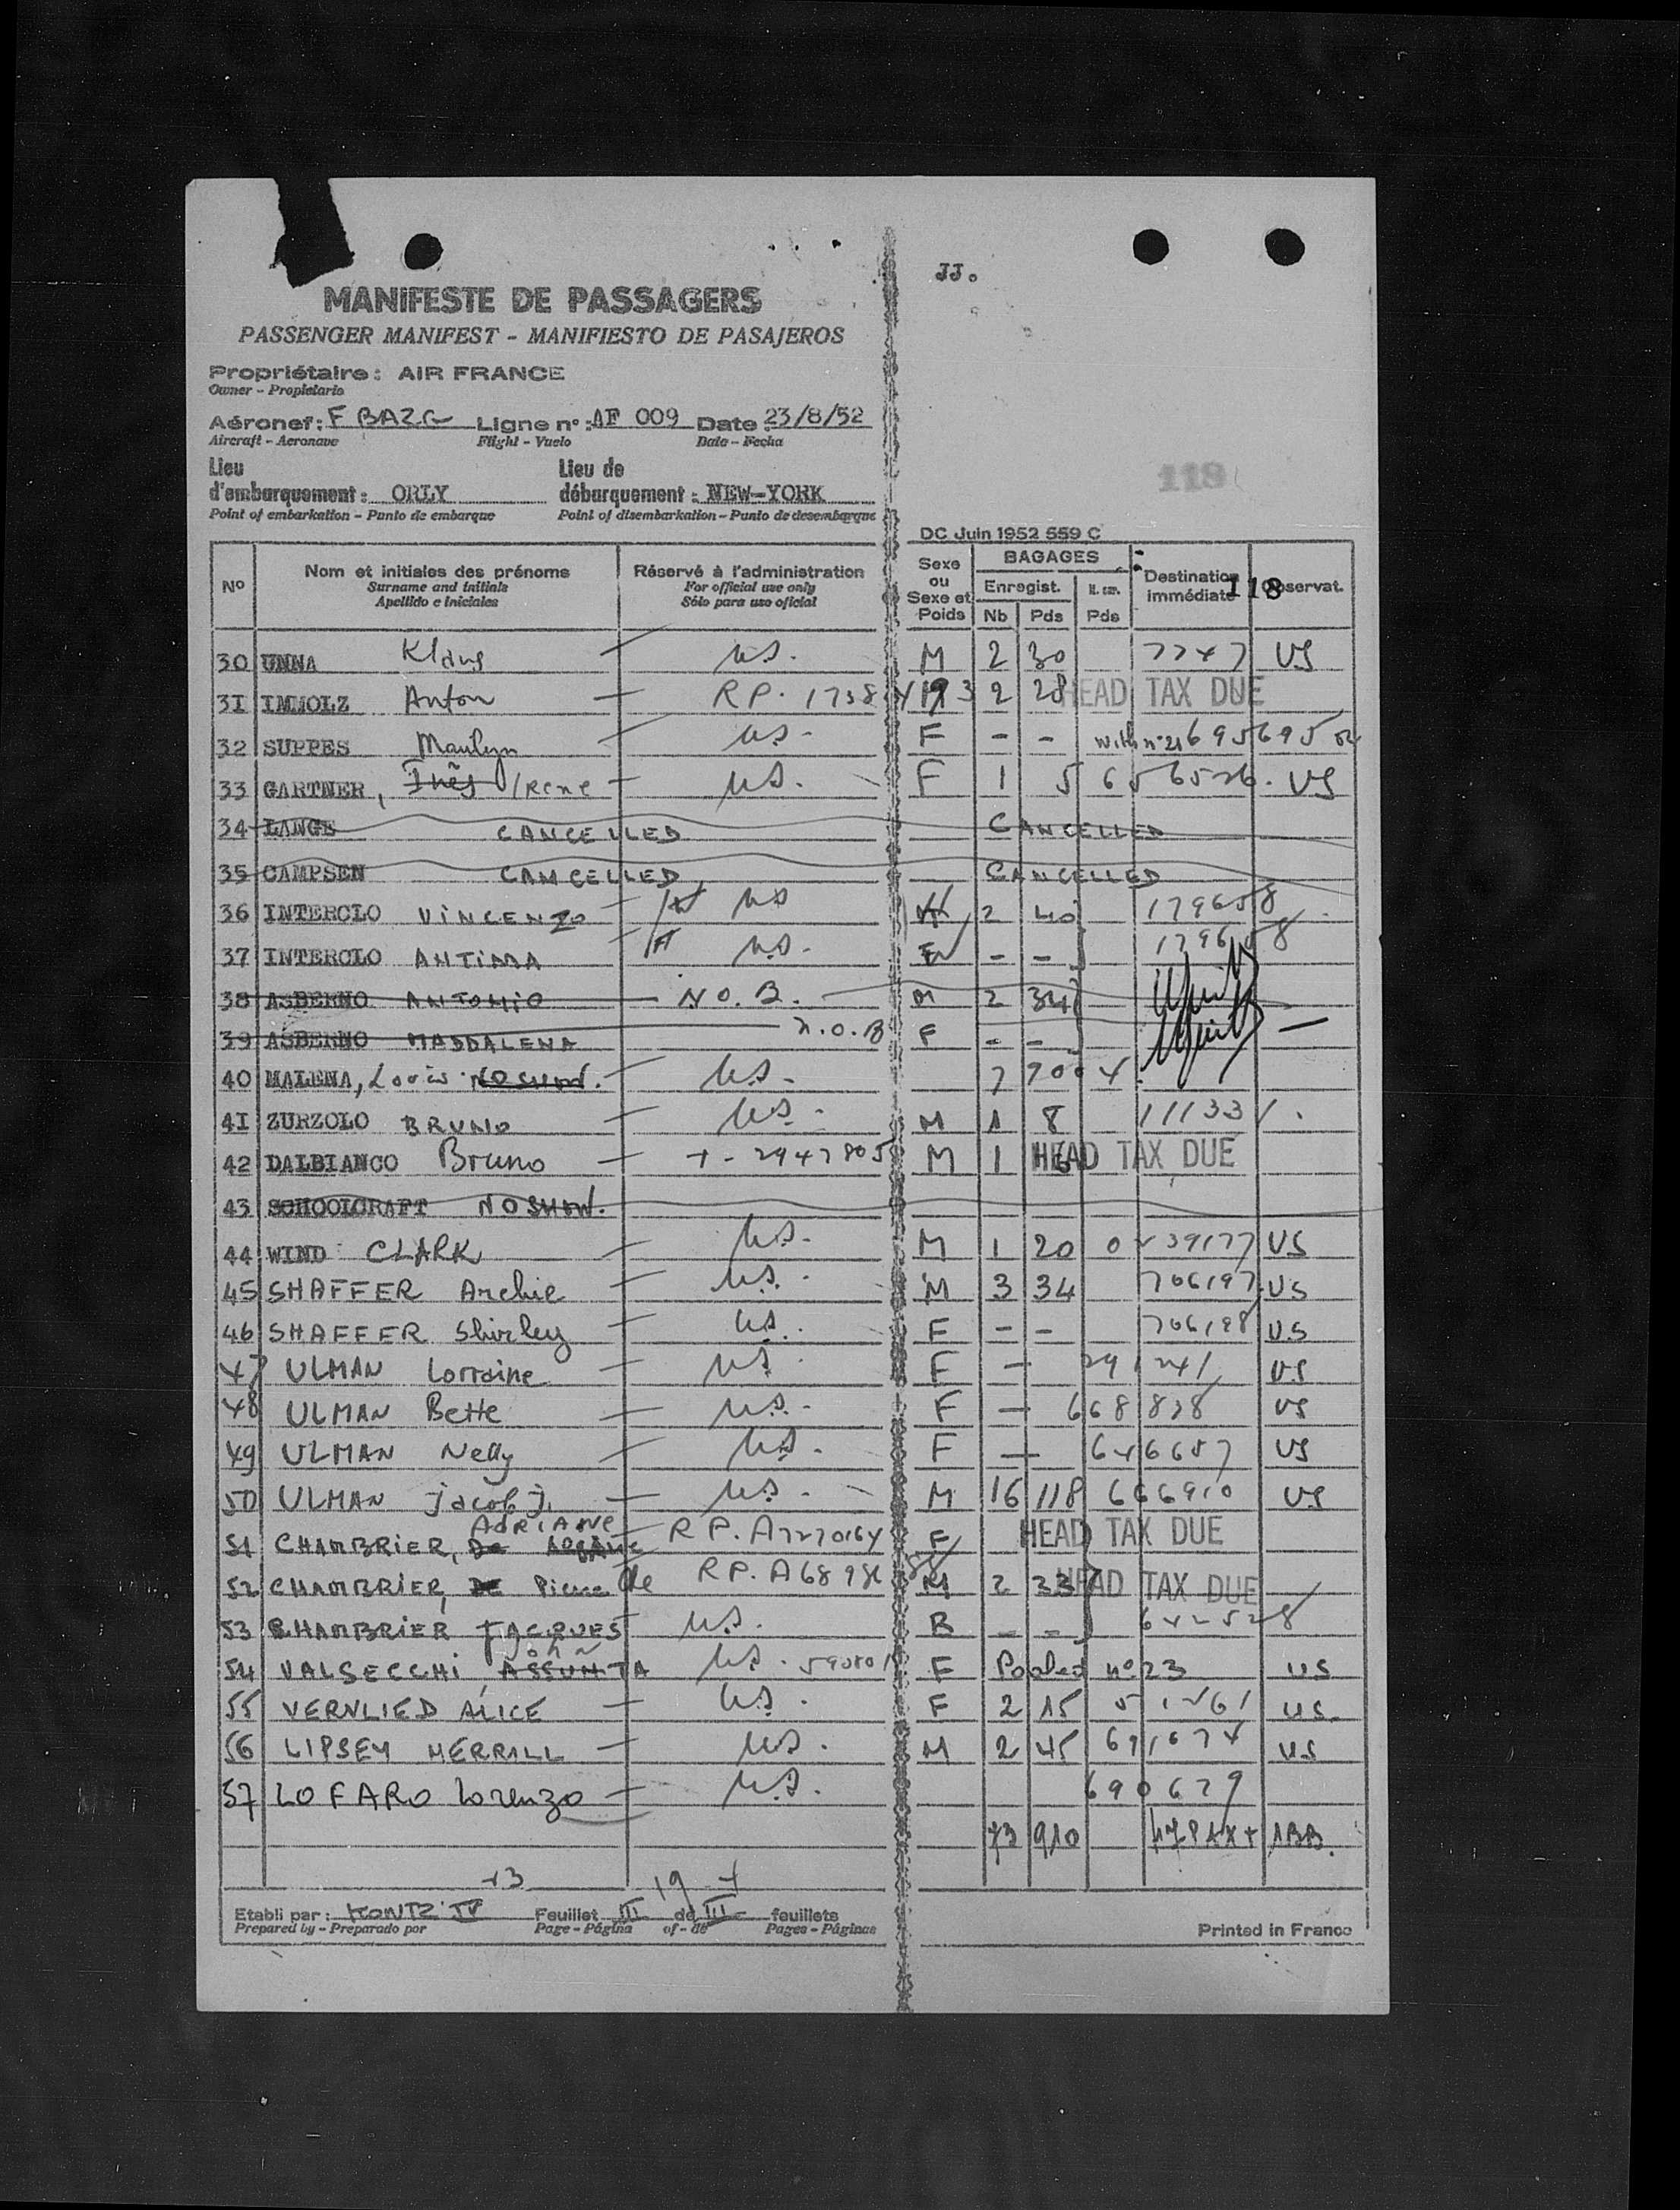 JJ.
MANIFESTE DE PASSAGERS
PASSENGER MANIFEST - MANIFIESTO DE PASAJEROS
Propriétaire : AIR FRANCE
Owner - Propietario
Aéronef : F BAZG Ligne n° : AF 009 Date : 23/8/52
Aircraft - Aeronave Flight - Vuelo Date - Fecha
Lieu d'embarquement : ORLY Lieu de débarquement : NEW-YORK
Point of embarkation - Punto de embarque Point of disembarkation - Punto de desembarque
118
DC Juin 1952 559 C
N° Nom et initiales des prénoms Réservé à l'administration Sexe ou Sexe et Poids BAGAGES Enregist. Nb Pds Pds Destination immédiate 118 Observat.
Surname and initials For official use only
Apellido e iniciales Sólo para uso oficial
30 UNNA Klaus US. M 2 30 7747 US
31 IMHOLZ Anton RP. 1738 2 28 HEAD TAX DUE
32 SUPPES Marilyn US. F - - with n°21 695695
33 GARTNER, Inês Irene US. F 1 5 656526. US
34 LANGE CANCELLED CANCELLED
35 CAMPSEN CANCELLED CANCELLED
36 INTERCLO VINCENZO US 2 40 179658
37 INTERCLO ANTIMA US. F - - 179658
38 ASBERNO ANTONIO N.O.B. M 2 34
39 ASBERNO MADDALENA N.O.B F - -
40 MALENA, Louis NOSHOW. US.
41 ZURZOLO BRUNO US. M 1 8 111331.
42 DALBIANCO Bruno M 1 HEAD TAX DUE
43 SCHOOLCRAFT NOSHOW.
44 WIND CLARK US. M 1 20 US
45 SHAFFER Archie US. M 3 34 706197 US
46 SHAFFER Shirley US. F - - 706198 US
47 ULMAN Lorraine US. F - 291241 US
48 ULMAN Bette US. F - 668838 US
49 ULMAN Nelly US. F - 646657 US
50 ULMAN Jacob J. US. M 16 118 666910 US
51 CHAMBRIER, De ADRIANE RP. A7270164 F HEAD TAX DUE
52 CHAMBRIER, DE Pierre de RP. A68986 M 2 33 HEAD TAX DUE
53 CHAMBRIER JACQUES US. B - -
54 VALSECCHI ASSUNTA John US. F Pooled n°23 US
55 VERVLIED ALICE US. F 2 15 US.
56 LIPSEY MERRILL US. M 2 45 691674 US
57 LOFARO Lorenzo US. 690679
73 910 47 PAX + 1BB.
19 4
Etabli par : Feuillet III de III feuillets
Prepared by - Preparado por Page - Página of - de Pages - Páginas
Printed in France